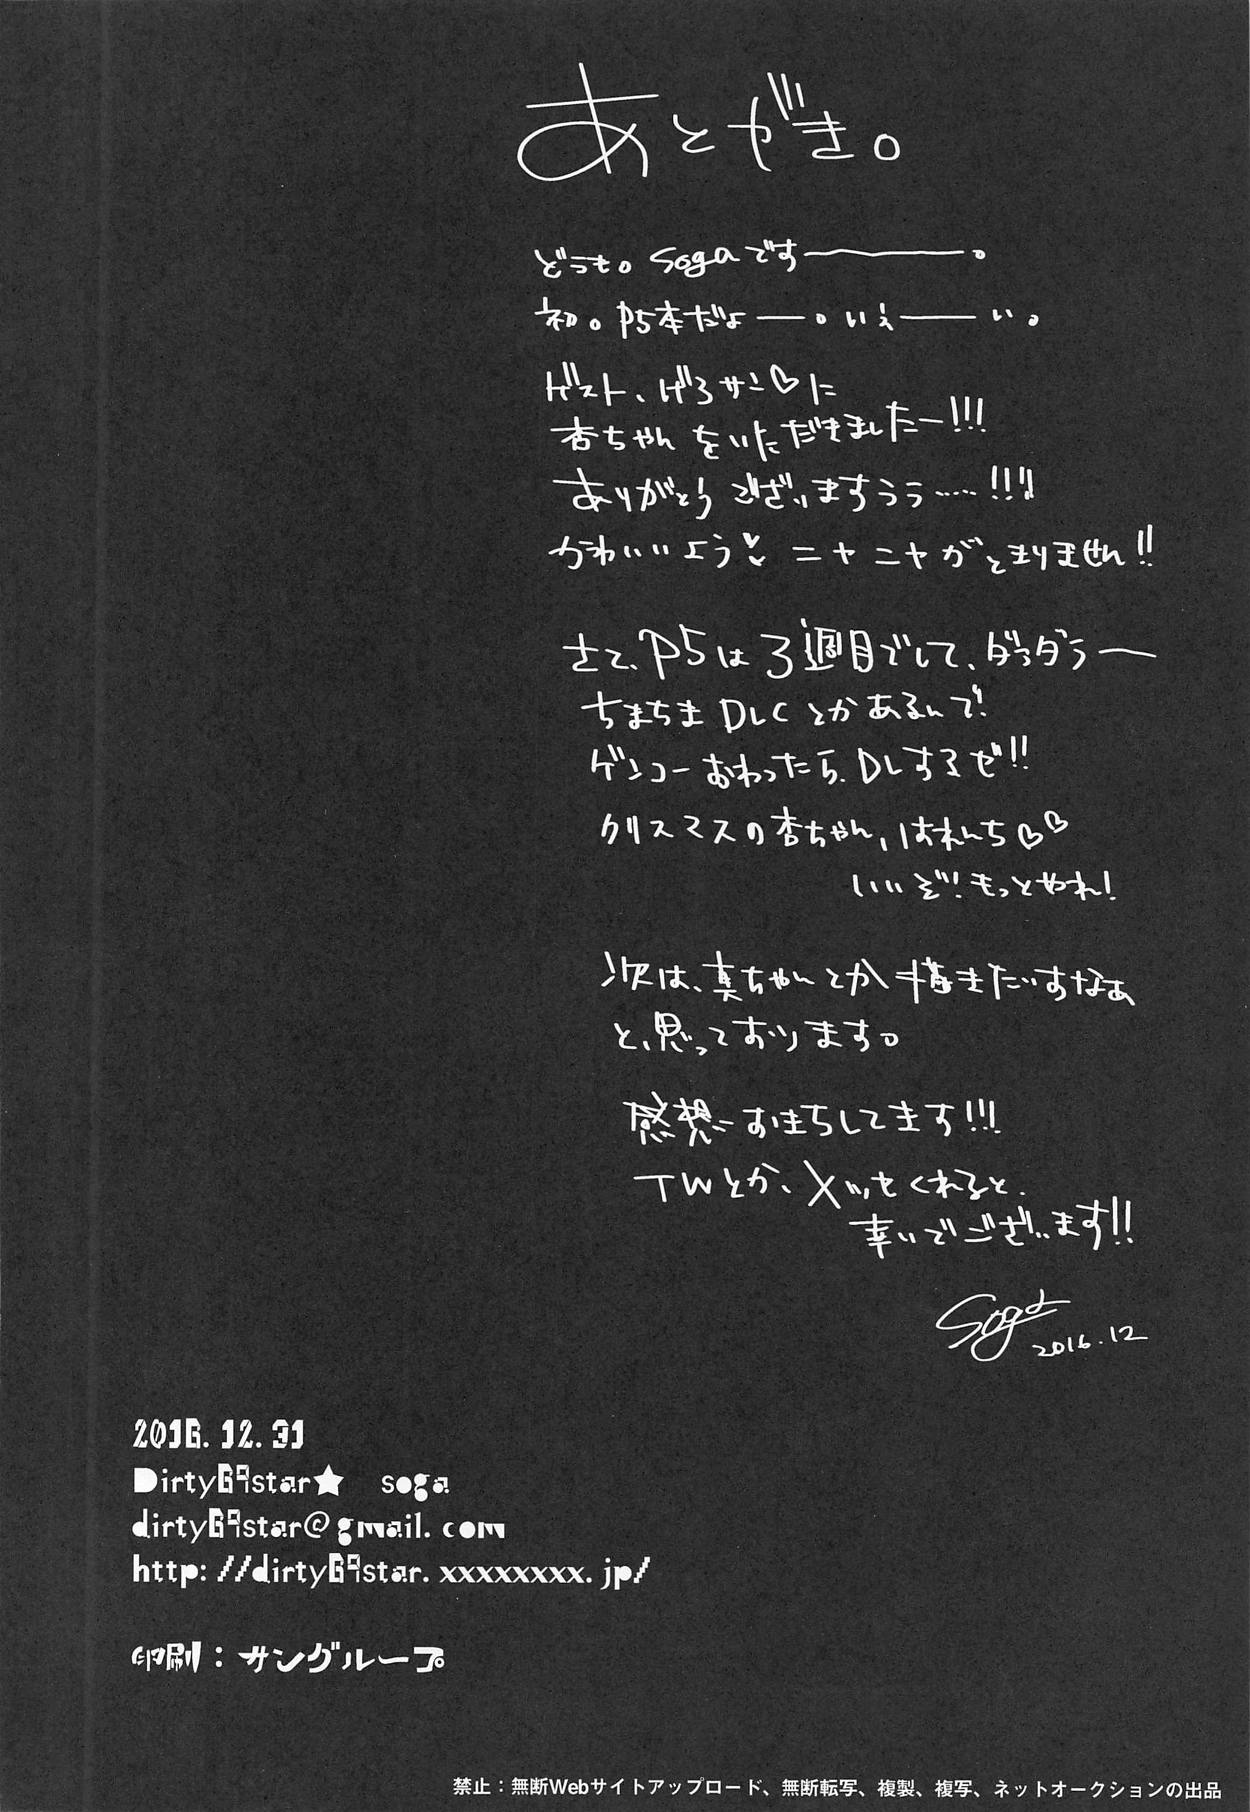 あとがき。
どうも。sogaです―――。
初。P5本だよ――。いぇ――い。
ゲスト、げろサン♡に
杏ちゃんをいただきましたー!!!
ありがとうございますうぅ……!!!
かわいいよう♡ ニヤニヤがとまりません!!
さて、P5は3週目でして、ダラダラー
ちまちまDLCとかあるんで!
ゲンコーおわったら、DLするぜ!!
クリスマスの杏ちゃん、はれんち♡♡
いいぞ!もっとやれ!
次は、真ちゃんとか描きたいすなあ
と、思っております。
感想おまちしてます!!!
TWとか、メッセくれると、
幸いでございます!!
Soga
2016.12
2016. 12. 31
Dirty69star★　soga
dirty69star@gmail.com
http://dirty69star.xxxxxxxx.jp/
印刷：サングループ
禁止：無断Webサイトアップロード、無断転写、複製、複写、ネットオークションの出品